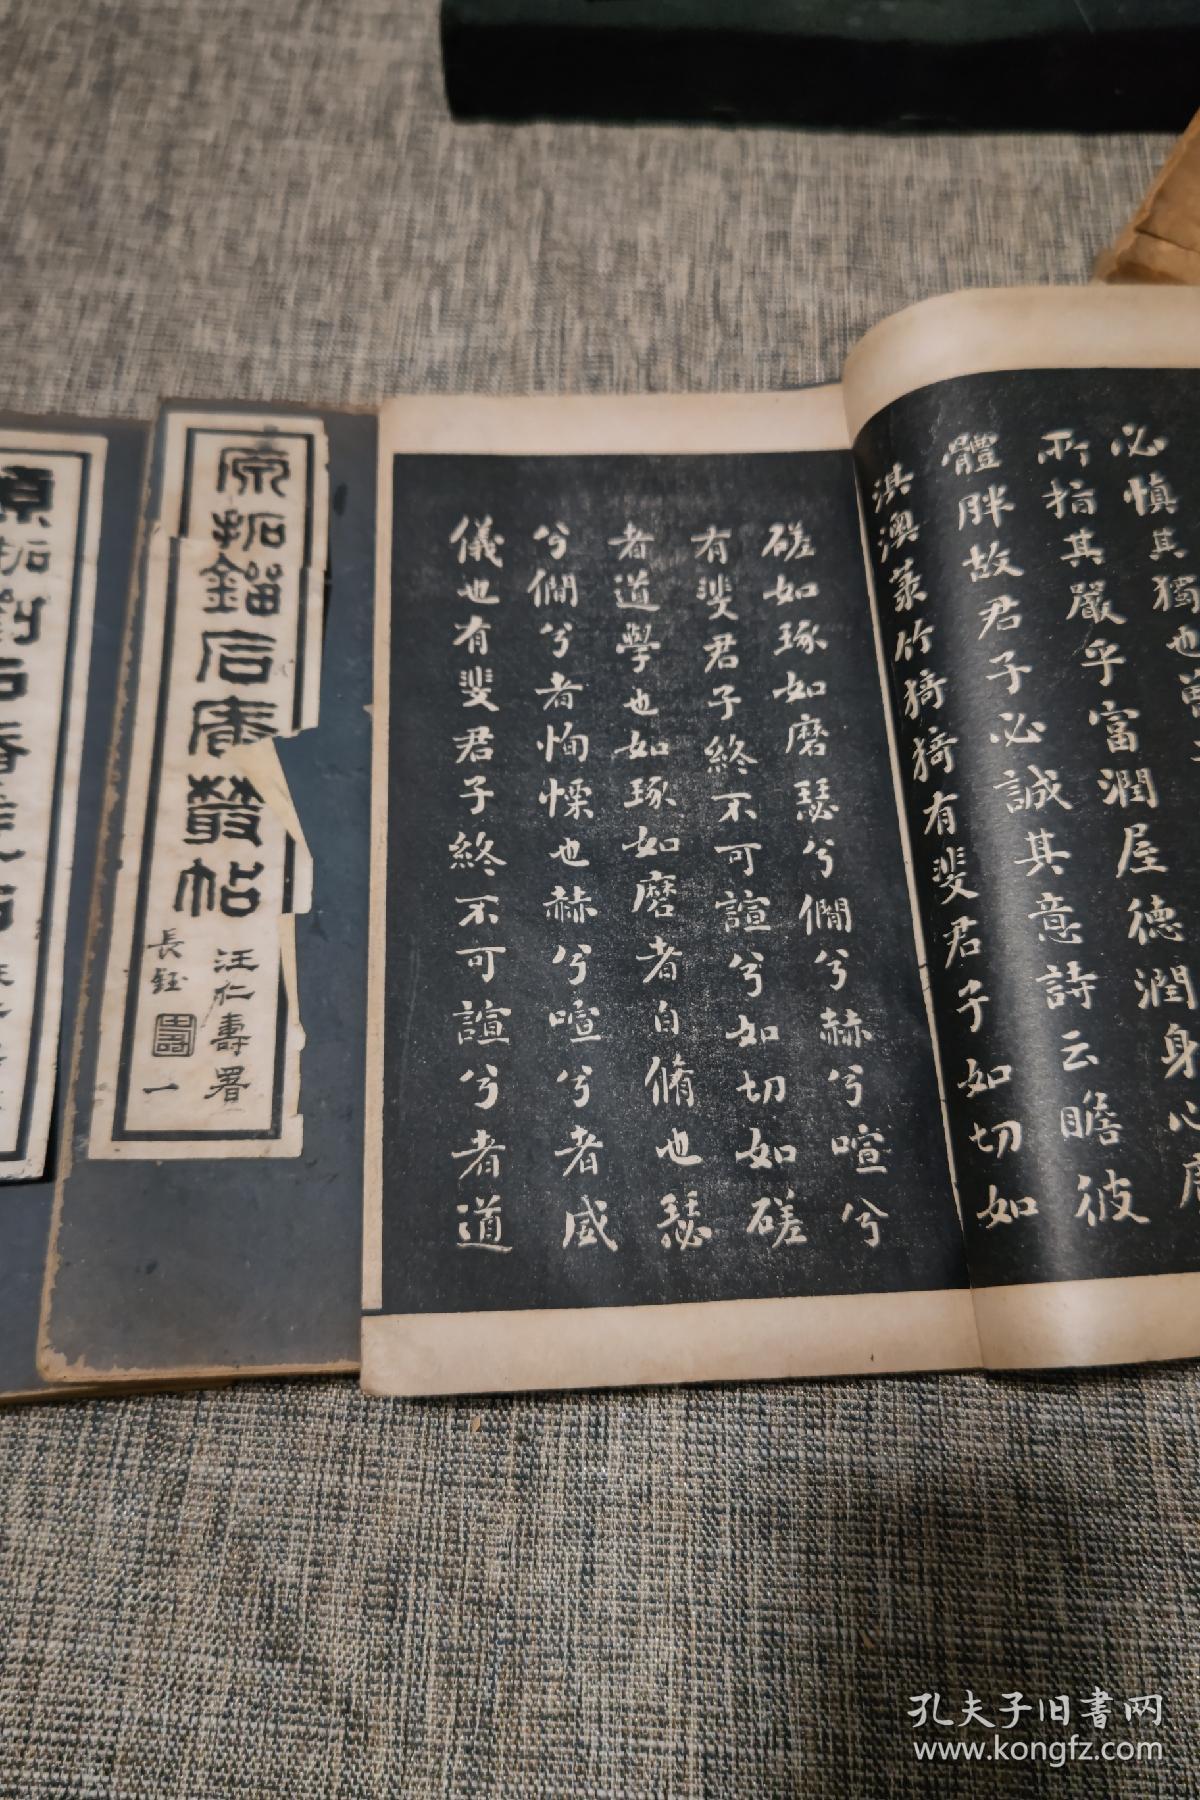 必慎其獨也曾子
所指其嚴乎富潤屋德潤身心廣
體胖故君子必誠其意詩云瞻彼
淇澳菉竹猗猗有斐君子如切如
磋如琢如磨瑟兮僩兮赫兮喧兮
有斐君子終不可諠兮如切如磋
者道學也如琢如磨者自脩也瑟
兮僩兮者恂慄也赫兮喧兮者威
儀也有斐君子終不可諠兮者道
原拓錙石庵叢帖
汪仁壽署
長鈺
一
原拓劉石菴
孔夫子旧書网
www.kongfz.com